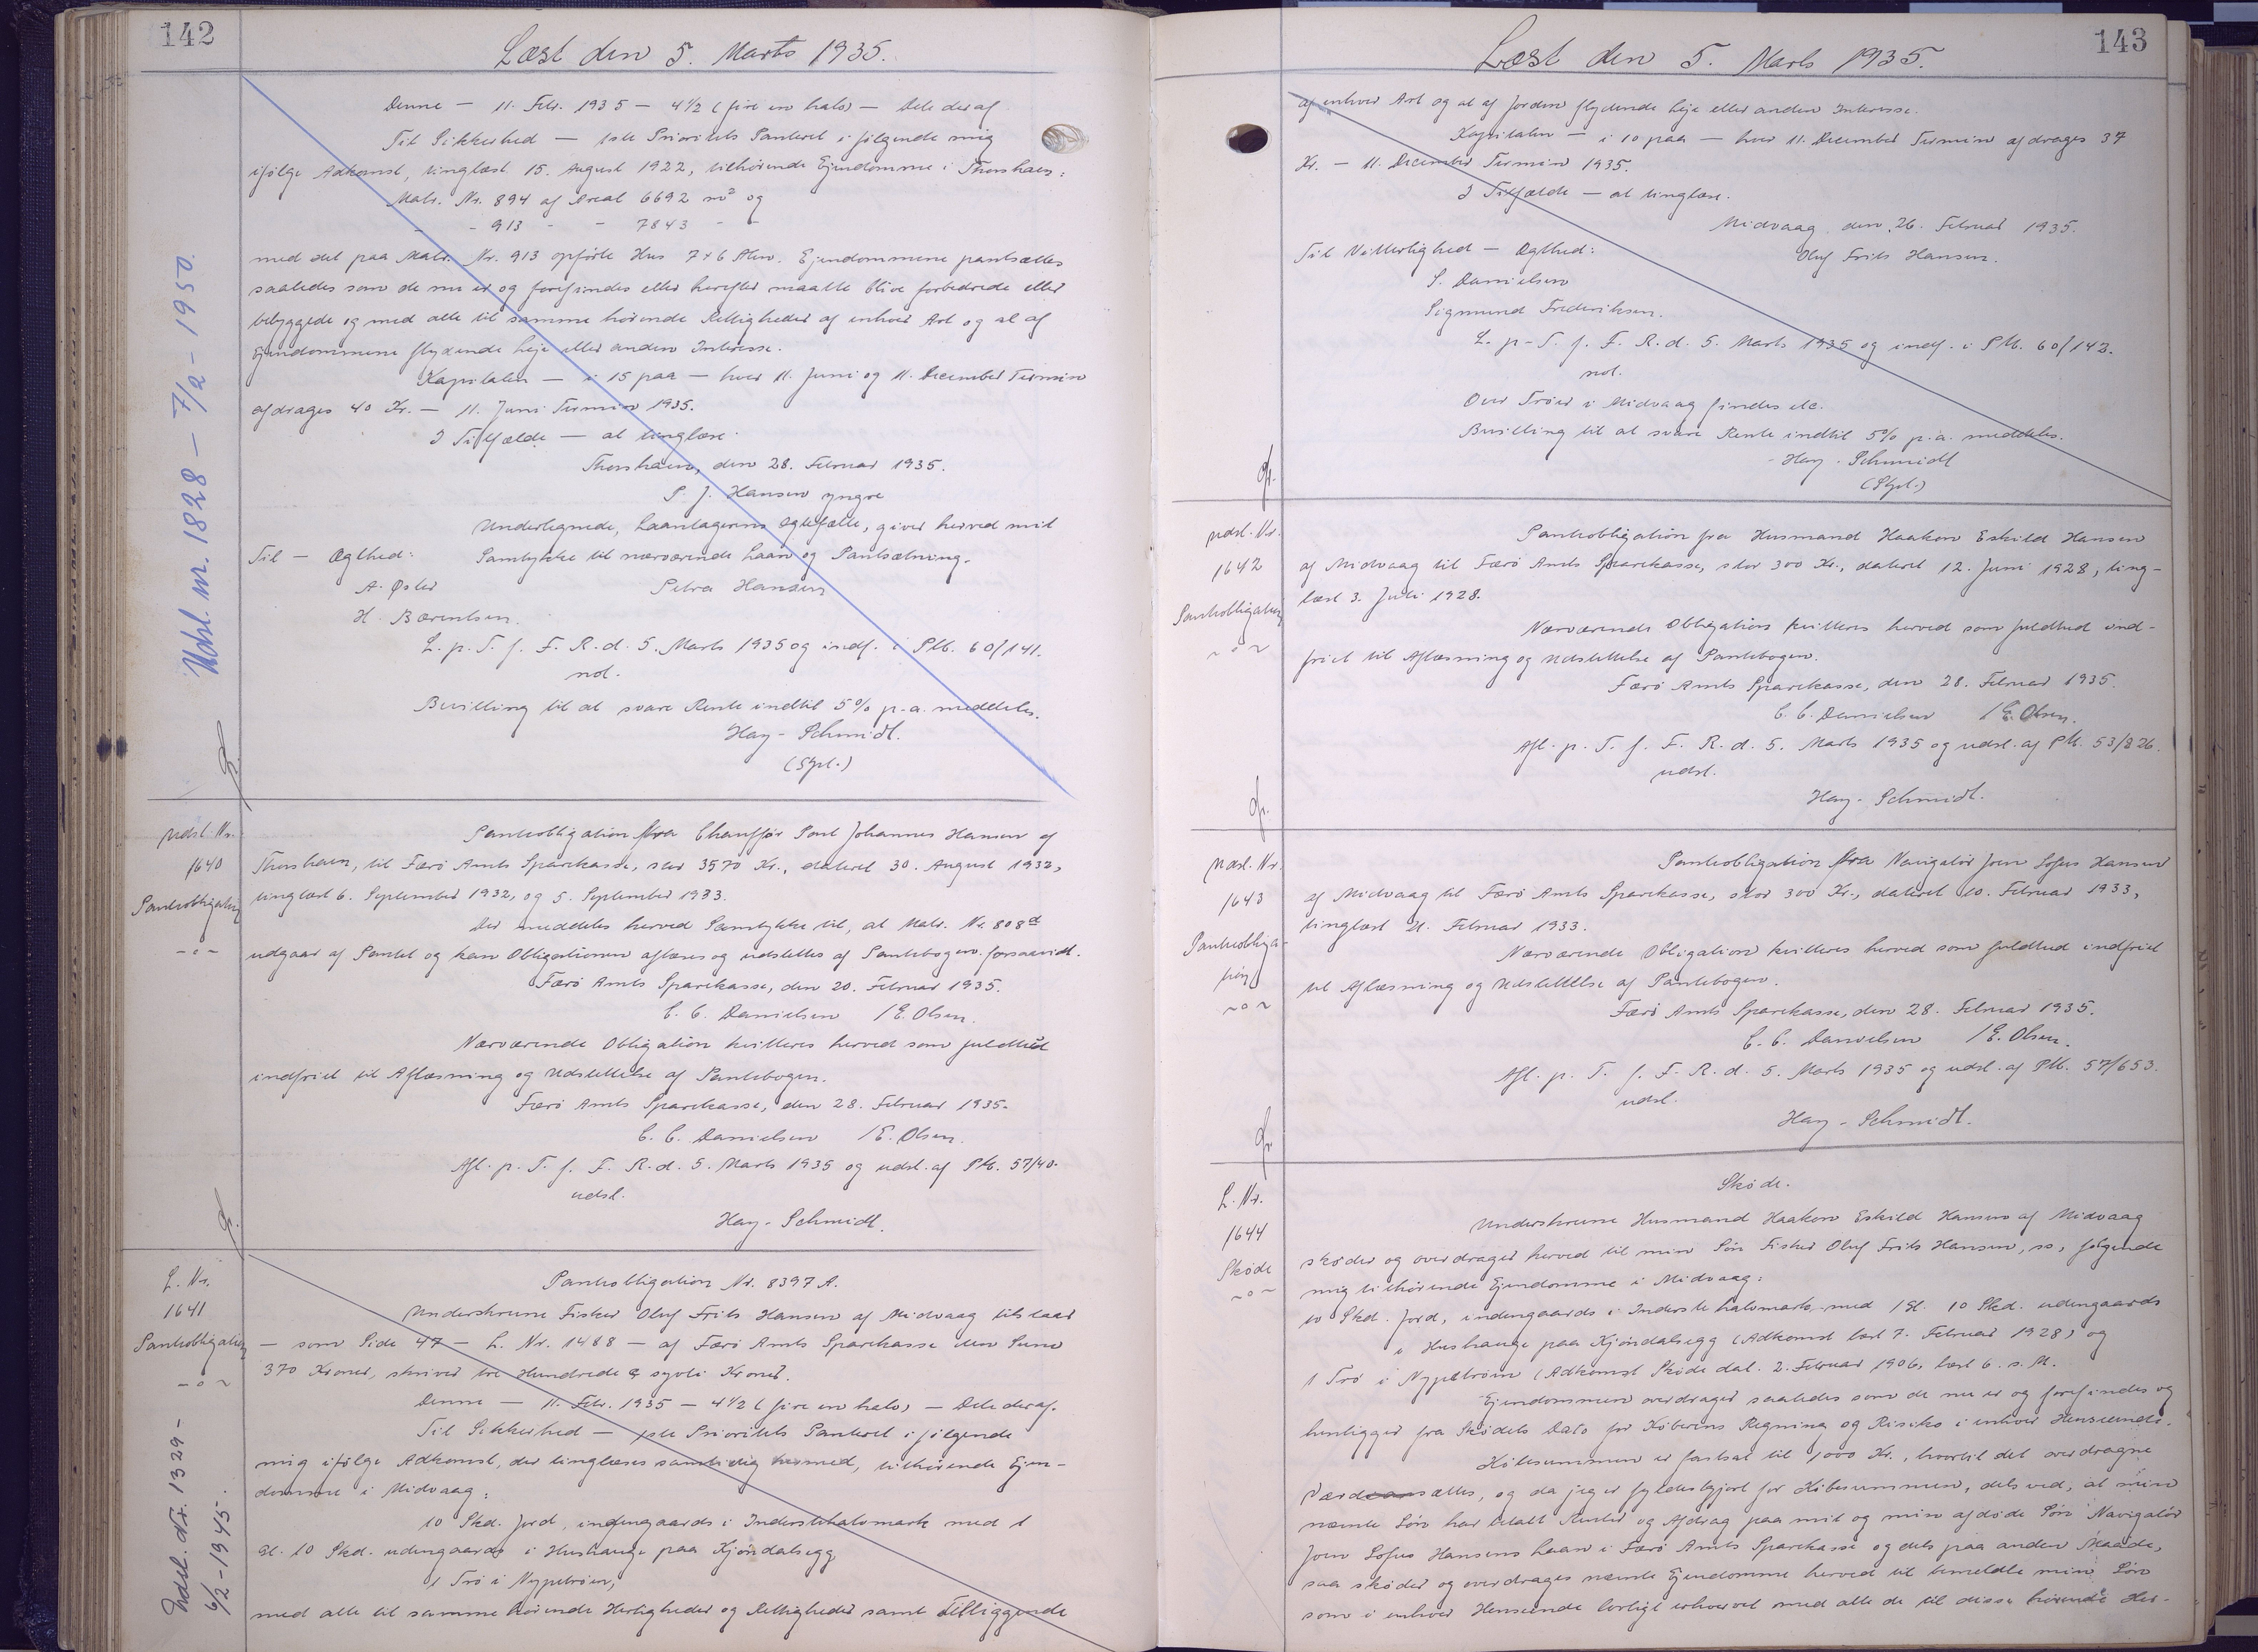 142
Læst den 5. Marts 1935.
Denne — 11. Febr. 1935 — 4½ (fire en halv) — Dele deraf
Til Sikkerhed — 1ste Prioritets Panteret i følgende mig
ifølge Adkomst, tinglæst 15. August 1922, tilhørende Ejendomme i Thorshavn:
Matr. Nr. 894 af Areal 6692 m² og
- - 913 - - 7843 - -
med det paa Matr. Nr. 913 opførte Hus 7×6 Alen. Ejendommene pantsættes
saaledes som de nu er og forefindes eller herefter maatte blive forbedrede eller
bebyggede og med alle til samme hørende Rettigheder af enhver Art og al af
Ejendommene flydende Leje eller anden Interesse.
Kapitalen — i 15 paa — hver 11. Juni og 11. December Termin
afdrages 40 Kr. — 11. Juni Termin 1935.
I Tilfælde — at tinglæse.
Thorshavn, den 28. Februar 1935.
P. J. Hansen yngre
Undertegnede, Laantagerens Ægtefælle, giver herved mit
Til — Ægthed: Samtykke til nærværende Laan og Pantsætning.
A. Øster Petra Hansen
H. Bærentsen.
L. p. T. f. F. R. d. 5. Marts 1935 og indf. i Ptb. 60/141.
not.
Bevilling til at svare Rente indtil 5% p.a. meddeles.
Hay-Schmidt.
(Sgl.)
Udsl. nr. 1828 — 7/2 - 1950.
Udsl. Nr.
1640
Pantobligation
- o -
Pantobligation fra Chauffør Poul Johannes Hansen af
Thorshavn, til Færø Amts Sparekasse, stor 3570 Kr., dateret 30. August 1932,
tinglæst 6. September 1932, og 5. September 1933.
Der meddeles herved Samtykke til, at Matr. Nr. 808d
udgaar af Pantet og kan Obligationen aflæses og udslettes af Pantebogen forsaavidt.
Færø Amts Sparekasse, den 20. Februar 1935.
C. C. Danielsen /E. Olsen.
Nærværende Obligation kvitteres herved som fuldtud
indfriet til Aflæsning og Udslettelse af Pantebogen.
Færø Amts Sparekasse, den 28. Februar 1935.
C. C. Danielsen /E. Olsen.
Afl. p. T. f. F. R. d. 5. Marts 1935 og udsl. af Ptb. 57/40.
udsl.
Hay-Schmidt.
L. Nr.
1641
Pantobligation
- o ~
Pantobligation Nr. 8397 A.
Underskrevne Fisker Oluf Frits Hansen af Midvaag tilstaar
— som Side 47 — L. Nr. 1488 — af Færø Amts Sparekasse den Sum
370 Kroner, skriver tre Hundrede & syvti Kroner.
Denne — 11. Febr. 1935 — 4½ (fire en halv) — Dele deraf.
Til Sikkerhed — 1ste Prioritets Panteret i følgende
mig ifølge Adkomst, der tinglæses samtidig hermed, tilhørende Ejen-
domme i Midvaag:
10 Skd. Jord, indengaards i Inderstehalvmark med 1
Gl. 10 Skd. udengaards i Hushauge paa Kjøndalsegg,
1 Trø i Nypitrøen,
med alle til samme hørende Herligheder og Rettigheder samt tilliggende
Udsl. Nr. 1329 -
6/2 - 1945.
143
Læst den 5. Marts 1935.
af enhver Art og al af Jorden flydende Leje eller anden Interesse.
Kapitalen — i 10 paa — hver 11. December Termin afdrages 37
Kr. — 11. December Termin 1935.
I Tilfælde — at tinglæse.
Midvaag, den 26. Februar 1935.
Til Vitterlighed — Ægthed: Oluf Frits Hansen.
S. Danielsen
Sigmund Frederiksen.
L. p. T. f. F. R. d. 5. Marts 1935 og indf. i Ptb. 60/142.
not.
Over Trøer i Midvaag findes etc.
Bevilling til at svare Rente indtil 5% p.a. meddeles.
Hay-Schmidt
(Sgl.)
Udsl. Nr.
1642
Pantobligation
~ o ~
Pantobligation fra Husmand Haakon Eskild Hansen
af Midvaag til Færø Amts Sparekasse, stor 300 Kr., dateret 12. Juni 1928, ting-
læst 3. Juli 1928.
Nærværende Obligation kvitteres herved som fuldtud ind-
friet til Aflæsning og Udslettelse af Pantebogen.
Færø Amts Sparekasse, den 28. Februar 1935.
C. C. Danielsen /E. Olsen.
Afl. p. T. f. F. R. d. 5. Marts 1935 og udsl. af Ptb. 53/826.
udsl.
Hay-Schmidt.
Udsl. Nr.
1643
Pantobliga-
tion
~ o ~
Pantobligation fra Navigatør Joen Sofus Hansen
af Midvaag til Færø Amts Sparekasse, stor 300 Kr., dateret 10. Februar 1933,
tinglæst 21. Februar 1933.
Nærværende Obligation kvitteres herved som fuldtud indfriet
til Aflæsning og Udslettelse af Pantebogen.
Færø Amts Sparekasse, den 28. Februar 1935.
C. C. Danielsen /E. Olsen.
Afl. p. T. f. F. R. d. 5. Marts 1935 og udsl. af Ptb. 57/653.
udsl.
Hay-Schmidt.
L. Nr.
1644
Skøde
~ o ~
Skøde.
Underskrevne Husmand Haakon Eskild Hansen af Midvaag
skøder og overdrager herved til min Søn Fisker Oluf Frits Hansen, ss, følgende
mig tilhørende Ejendomme i Midvaag:
10 Skd. Jord, indengaards i Inderste halvmark, med 1 Gl. 10 Skd. udengaards
i Hushauge paa Kjøndalsegg (Adkomst læst 7. Februar 1928) og
1 Trø i Nypitrøen (Adkomst Skøde dat. 2. Februar 1906, læst 6. s. M.
Ejendommen overdrages saaledes som de nu er og forefindes og
henligger fra Skødets Dato for Køberens Regning og Risiko i enhver Henseende.
Købesummen er fastsat til 1000 Kr., hvortil det overdragne
Værdeansættes, og da jeg er fyldestgjort for Købesummen, dels ved, at min
nævnte Søn har betalt Renter og Afdrag paa mit og min afdøde Søn Navigatør
Joen Sofus Hansens Laan i Færø Amts Sparekasse og dels paa anden Maade,
saa skøder og overdrages nævnte Ejendomme herved til bemeldte min Søn
som i enhver Henseende lovligt erhvervet med alle de til disse hørende Her-